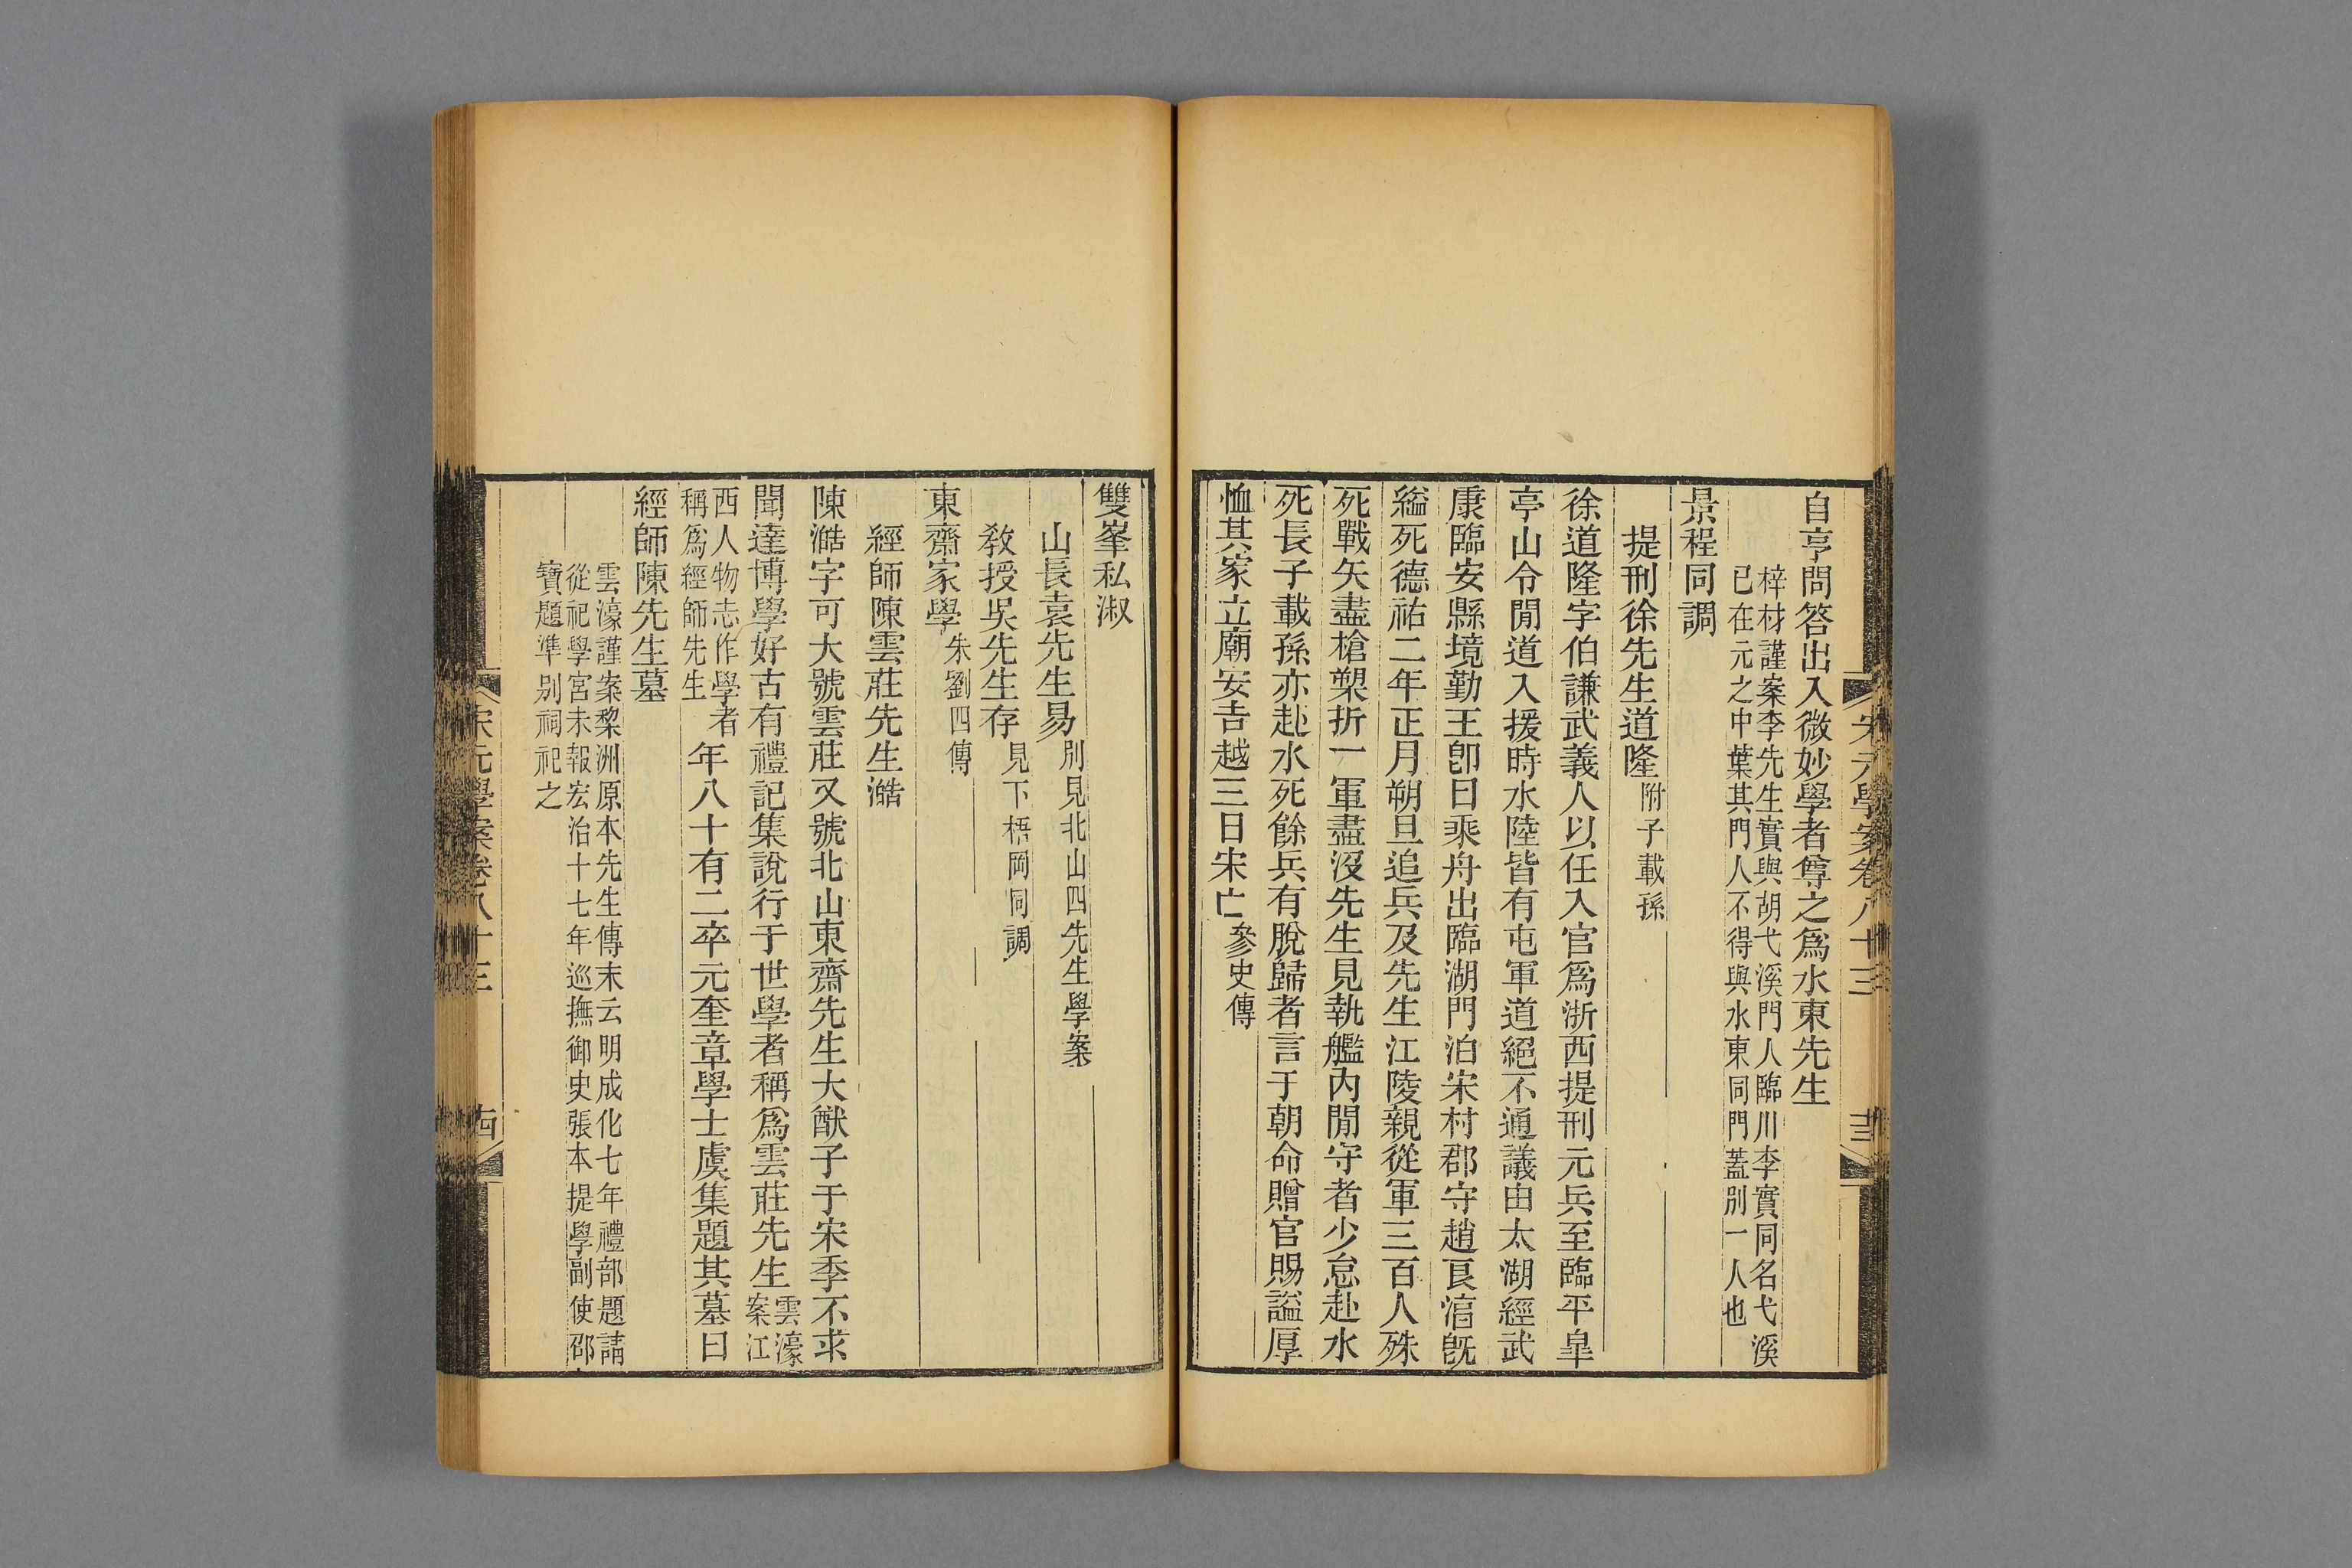 宋元學案卷八十三
自亨問答出入微妙學者尊之爲水東先生
梓材謹案李先生實與胡弋溪門人臨川李實同名弋溪
已在元之中葉其門人不得與水東同門蓋別一人也
景程同調
提刑徐先生道隆附子載孫
徐道隆字伯謙武義人以任入官爲浙西提刑元兵至臨平皐
亭山令閒道入援時水陸皆有屯軍道絕不通議由太湖經武
康臨安縣境勤王卽日乘舟出臨湖門泊宋村郡守趙良淯旣
縊死德祐二年正月朔旦追兵及先生江陵親從軍三百人殊
死戰矢盡槍槊折一軍盡沒先生見執艦內閒守者少怠赴水
死長子載孫亦赴水死餘兵有脫歸者言于朝命贈官賜謚厚
恤其家立廟安吉越三日宋亡參史傳
雙峯私淑
山長袁先生易別見北山四先生學案
教授吳先生存見下梧岡同調
東齋家學朱劉四傳
經師陳雲莊先生澔
陳澔字可大號雲莊又號北山東齋先生大猷子于宋季不求
聞達博學好古有禮記集說行于世學者稱爲雲莊先生雲濠
案江
西人物志作學者
稱爲經師先生年八十有二卒元奎章學士虞集題其墓曰
經師陳先生墓
雲濠謹案黎洲原本先生傳末云明成化七年禮部題請
從祀學宮未報宏治十七年巡撫御史張本提學副使邵
寶題準別祠祀之
宋元學案卷八十三